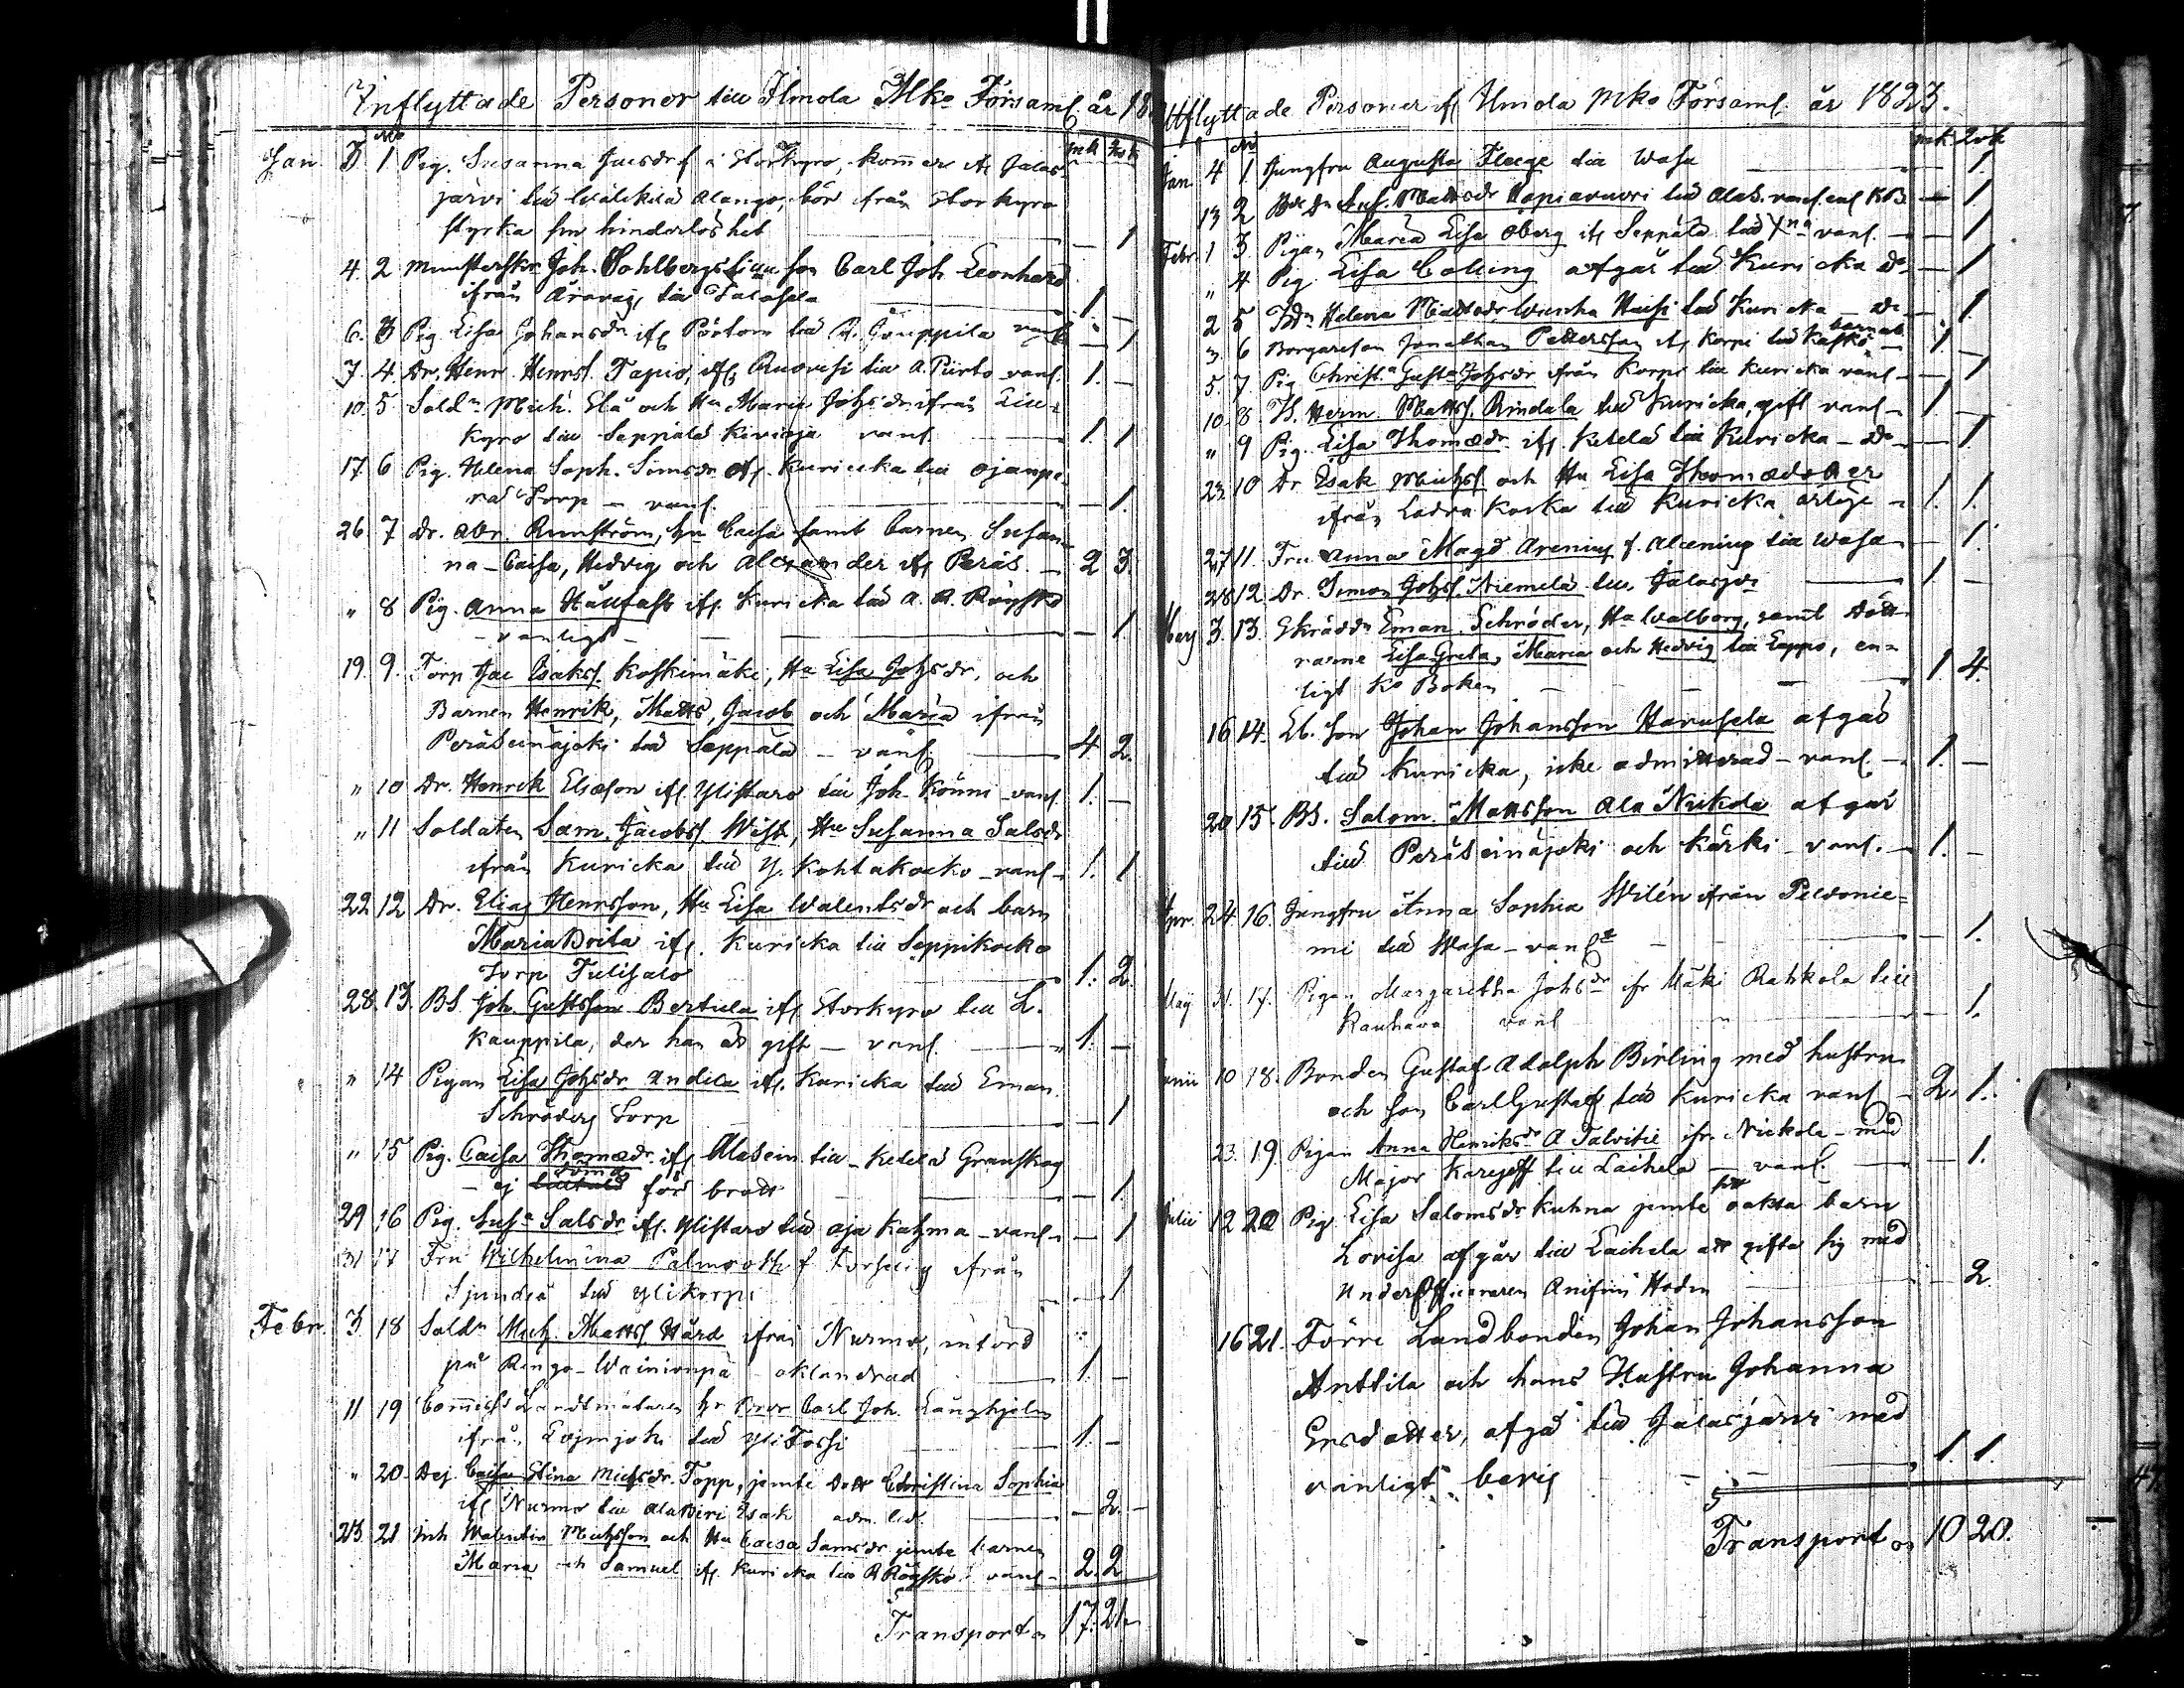 Inflyttade Personer till Ilmola Mko Församl. år 18
No mk qvk
Jan. 3 1 Pig. Susanna Jacsdr f. i Storkyro, kommer ifr Jalas-
järvi till Wälikilä Alango, bör ifrån Storkyro
styrka sin hinderlöshet — 1
4. 2 Munsterskr. Joh. Sahlbergs son Carl Joh. Leonhard
ifrån till Talasela 1. —
6. 3 Pig. Lisa Johansdr ifr Pörtom till A. Jouppila vanl. — 1
7. 4. Dr. Henr. Henrss. Tapio, ifr Ruovesi till A. Piirto vanl. 1. —
10. 5. Soldn Mich. Elä och Hu Maria Johsdr ifrån Lill-
kyro till Seppälä Kivioja vanl. 1. 1
17. 6 Pig. Helena Soph. Simsdr ifr. Kuricka till Ojanpe-
rä Torp — vanl. — 1.
26. 7 Dr. Abr. Runström, hu Caisa samt barnen Susan-
na-Caisa, Hedvig och Alexander ifr Peräs. — 2 3.
" 8 Pig. Anna Hällfast ifr. Kuricka till A. R. Röyskö
- vanligt - — 1.
19. 9. Torp Jac Isakss. Koskimäki, Hu Lisa Johsdr, och
Barnen Henrik, Matts, Jacob och Maria ifrån
Peräseinäjoki till Seppälä — vanl. 4 2.
" 10 Dr. Henrik Eliæson ifr. Ylistaro till Joh. Könni - vanl. 1. —
" 11 Soldaten Sam. Jacobss. Wist, Hu Susanna Salsdr
ifrån Kuricka till Y. Kohtakocko - vanl. - 1. 1
22 12 Dr. Elias Henrsson, Hu Lisa Walentsdr och barn
Maria Brita ifr. Kuricka till Seppikocko
Torp Tulisalo 1. 2.
28. 13. BS. Joh. Gustsson Bertula ifr Storkyro till L.
Kauppila, der han är gift — vanl. 1. —
" 14 Pigan Lisa Johsdr Andila ifr. Kuricka till Eman.
Schröders Torp — 1
" 15 Pig. Caisa Thomædr. ifr Alasein. till Ketelä Granskog
- ej för brott — 1.
29 16 Pig. Susa Salsdr ifr. Ylistaro till Oja Katzma - vanl. - — 1
31 17 Fru Wilhelmina Palmroth f. från
Sjundeå till Ylikorpi — 1
Febr. 3 18 Soldn Mich. Matts Hård ifrån Nurmo, införd
på Rengo-Wainionpä oklandrad 1. —
11 19 Commiss Landtmätaren hr Carl Joh. Langhjelm
ifrån Evjmjoki till Yli Tossi 1. —
" 20. Dej. Caisa Stina Michsdr. Topp, jemte dottr Christina Sophia
ifr Nurmo till Alaviiri Isak adm. led. — 2. —
23 21 Inh Walentin Michsson och Hu Caisa Samsdr jemte barnen
Maria och Samuel ifr. Kuricka till R Röyskö vanl. - 2. 2
Transport 17. 21
Utflyttade Personer ifr Ilmola Mko Församl. år 1823.
No mk qvk
Jan. 4 1. Jungfru Augusta Flege till Wasa — 1.
13 2 Mattsdr Hapiavuori till Alas. vanl. enl KB. — 1
Febr. 1 3. Pigan Maria Lisa Öberg ifr Seppälä till vanl. — 1
" 4 Pig. Lisa Colling afgår till Kuricka do — 1
2 5 Helena Mattsdr Wanha Hacsi till Kuricka — do — 1.
3. 6 Borgareson Jonathan Pettersson ifr Korpi till Kaskö 1. —
5. 7. Pig. Christa Gusta Johsdr ifrån Korpi till Kuricka vanl — 1
10. 8 Herm. Mattss. Rindala till Kuricka, gift vanl. - 1. —
" 9 Pig. Lisa Thomædr ifr. Ketelä till Kuricka - do - — 1.
23. 10 Dr. Isak Michss och Hu Lisa Thomædotter
ifrån Ladva Kocka till Kuricka 1. 1.
27 11. Fru Anna Magd Arenius f. Alcenius till Wasa — 1.
28 12. Dr. Simon Johss. Niemelä till Jalasjvi 1. —
Mars 3. 13. Skräddn Eman. Schröder, Hu Walborg, samt dött-
rarne Lisa Greta, Maria och Hedvig till Lappo, en-
ligt Ko Boken 1. 4.
16 14. Lb. son Johan Johansson Harusela afgår
till Kuricka, icke admitterad - vanl. — 1. —
20 15. BS. Salom. Mattsson Ala Nickola afgår
till Peräseinäjoki och Kärki - vanl. — 1. —
Apr. 24. 16. Jungfru Anna Sophia Wilén ifrån Peldonie-
mi till Wasa - vanlt — 1.
Maj 31. 17. Pigan Margaretha Johsdr ifr Mäki Rahkola till
Kauhava vanl — 1.
Junii 10 18. Bonden Gustaf Adolph Birling med hustru
och son Carl Gustaf till Kuricka vanl - 2. 1.
23. 19. Pigan Anna Henriksdr A Talvitie ifr. Nickola - med
Major Karyeff till Laihela — vanl. — 1.
Julii 12 20 Pig. Lisa Salomsdr Kuhna jemte oäkta barn
Lovisa afgår till Laihela att gifta sig med
Underofficeraren Anifrin Hodin — 2.
16 21. Förre Landbonden Johan Johansson
Anttila och hans Hustru Johanna
Ersdotter, afgå till Jalasjärvi med
vanligt bevis 1. 1.
Transport 10 20.